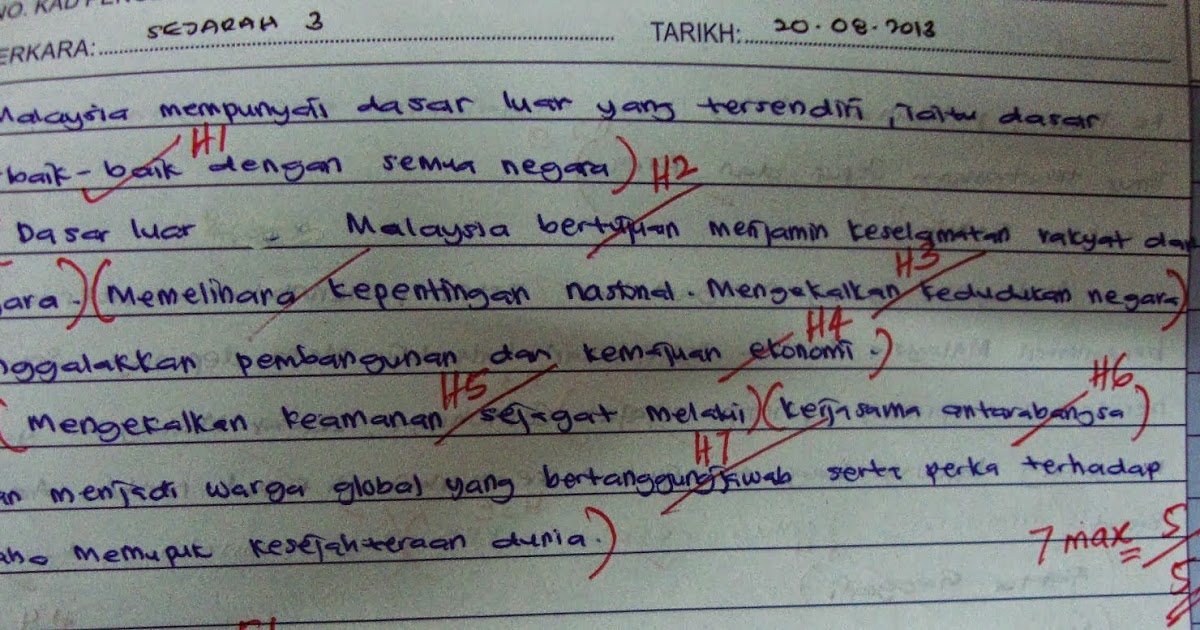 NO. KAD PENG
ERKARA: SEJARAH 3 TARIKH: 20.08.2013
Malaysia mempunyai dasar luar yang tersendiri, Iaitu dasar
H1
baik-baik dengan semua negara) H2
Dasar luar - Malaysia bertujuan menjamin keselamatan rakyat dan
H3
ara.) (Memelihara kepentingan nasional. Mengekalkan kedudukan negara)
H4
nggalakkan pembangunan dan kemajuan ekonomi.)
H5 H6
(mengekalkan keamanan sejagat melalui) (kerjasama antarabangsa)
H7
an menjadi warga global yang bertanggungjawab serta perka terhadap
memupuk kesejahteraan dunia.)
7 max 5
5